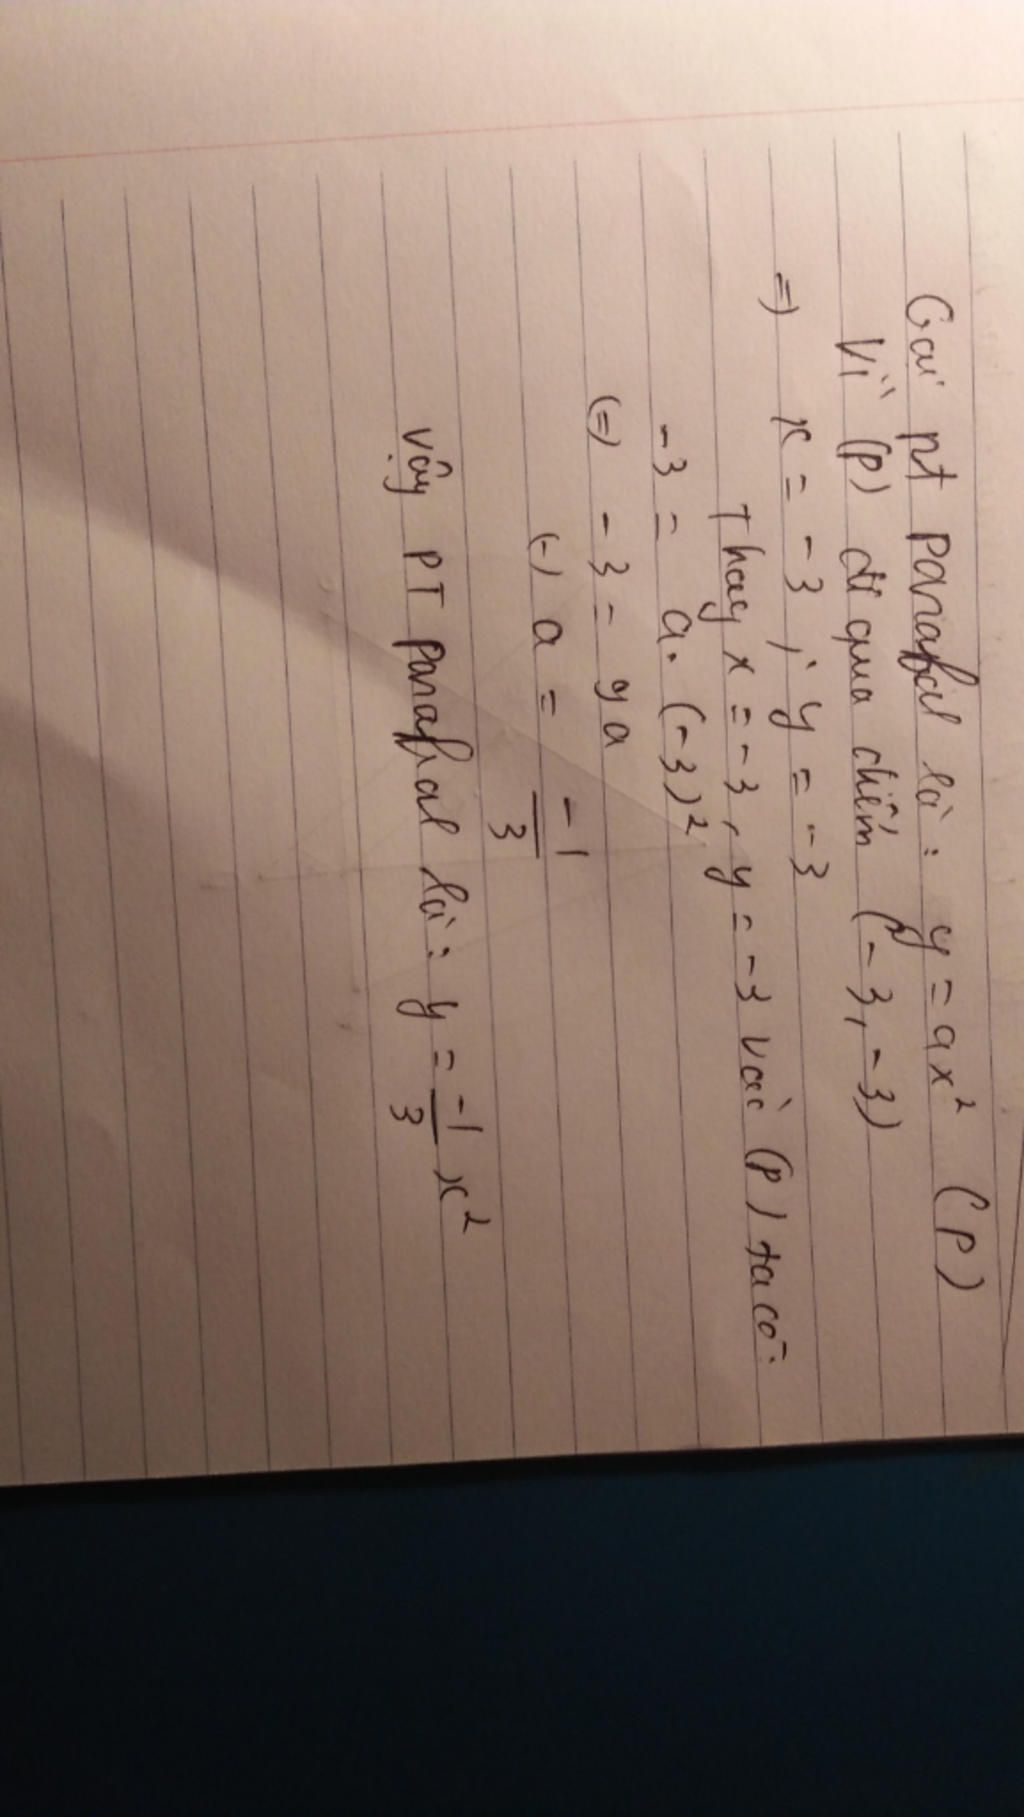 Gọi pt parabol là: y = ax² (P)
Vì (P) đi qua điểm (-3,-3)
=) x = -3 ; y = -3
Thay x = -3, y = -3 vào (P) ta có:
-3 = a. (-3)²
(=) -3 = 9a
(=) a = -1/3
Vậy PT parabol là: y = -1/3 x²